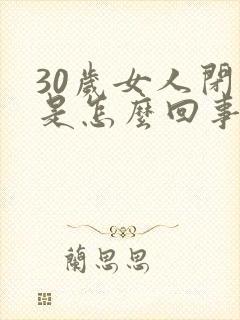 30歲女人閉
是怎麼回事
蘭思思